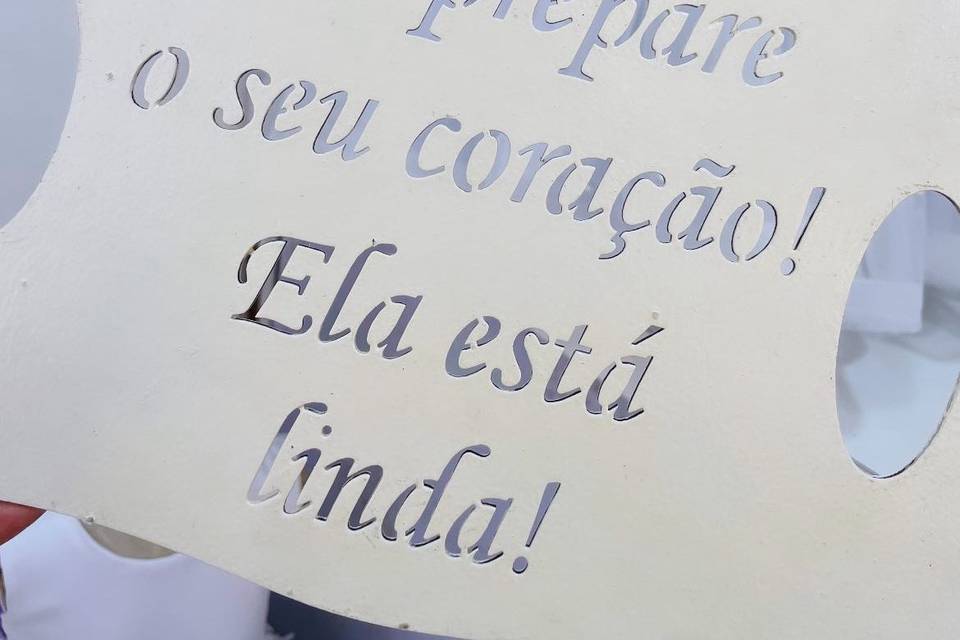 prepare
o seu coração!
Ela está
linda!